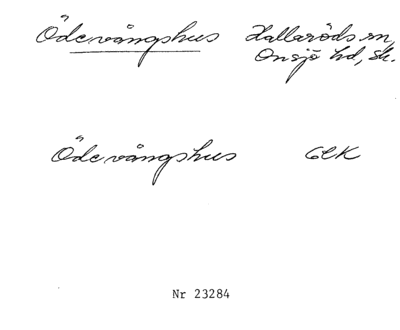 Ödevångshus Hallaröds sn,
Onsjö hd, Sk.
Ödevångshus GEK
Nr 23284